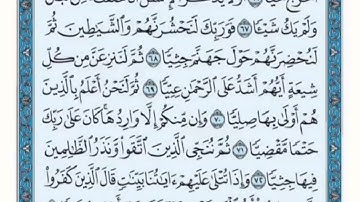 وَلَمْ يَكُ شَيْـًٔا ٦٧ فَوَرَبِّكَ لَنَحْشُرَنَّهُمْ وَٱلشَّيَـٰطِينَ ثُمَّ
لَنُحْضِرَنَّهُمْ حَوْلَ جَهَنَّمَ جِثِيًّا ٦٨ ثُمَّ لَنَنزِعَنَّ مِن كُلِّ
شِيعَةٍ أَيُّهُمْ أَشَدُّ عَلَى ٱلرَّحْمَـٰنِ عِتِيًّا ٦٩ ثُمَّ لَنَحْنُ أَعْلَمُ بِٱلَّذِينَ
هُمْ أَوْلَىٰ بِهَا صِلِيًّا ٧٠ وَإِن مِّنكُمْ إِلَّا وَارِدُهَا ۚ كَانَ عَلَىٰ رَبِّكَ
حَتْمًا مَّقْضِيًّا ٧١ ثُمَّ نُنَجِّى ٱلَّذِينَ ٱتَّقَوا۟ وَّنَذَرُ ٱلظَّـٰلِمِينَ
فِيهَا جِثِيًّا ٧٢ وَإِذَا تُتْلَىٰ عَلَيْهِمْ ءَايَـٰتُنَا بَيِّنَـٰتٍ قَالَ ٱلَّذِينَ كَفَرُوا۟